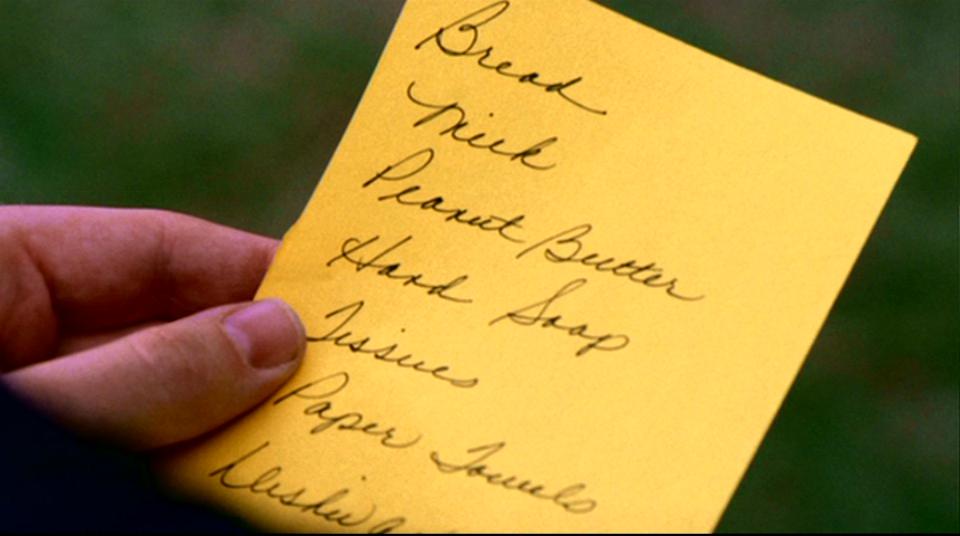 Bread
Milk
Peanut Butter
Hand Soap
Tissues
Paper Towels